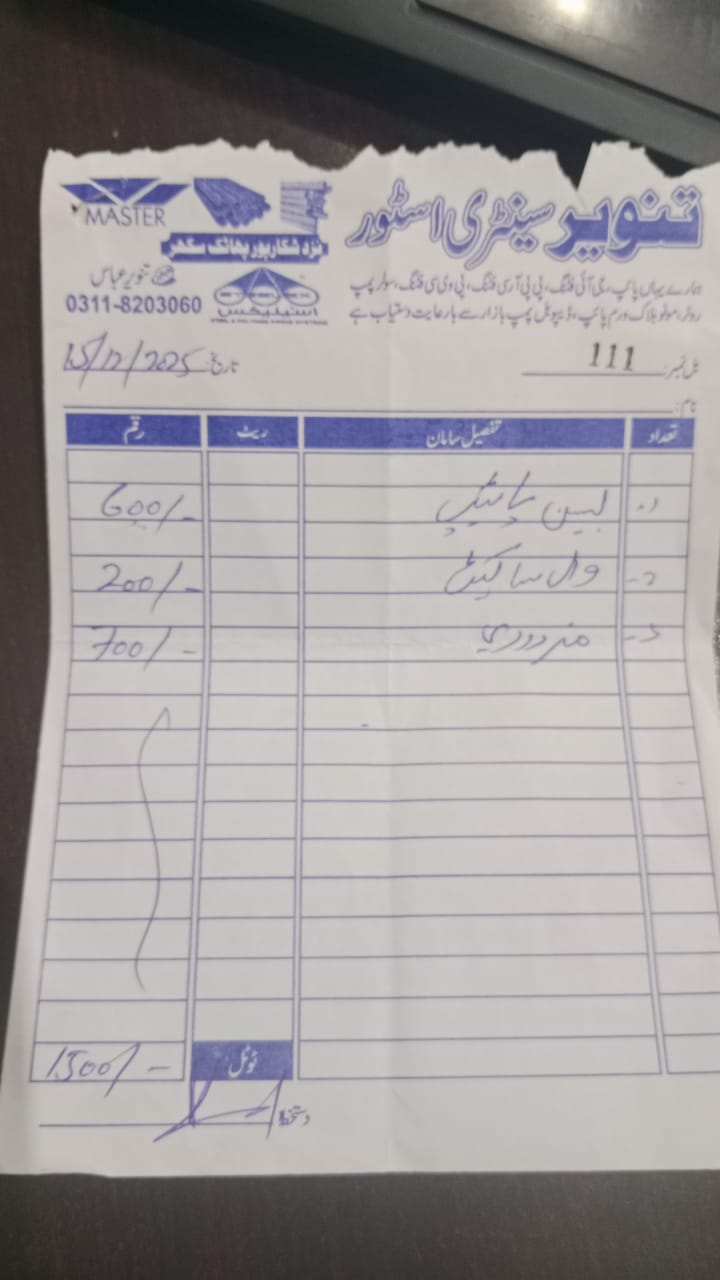 تنویر سینٹری اسٹور
MASTER
نزد شکارپور پھاٹک سکھر
تنویر عباس
0311-8203060
اسٹیلیکس
ہمارے یہاں پائپ، جی آئی فٹنگ، پی پی آر سی فٹنگ، پی وی سی فٹنگ، سولر پمپ
بلاک ورم پائپ، ڈیپ ویل پمپ بازار سے بارعایت دستیاب ہے
بل نمبر: 111
تاریخ: 15/12/2025
نام:
تعداد تفصیل سامان ریٹ رقم
1- بیسن پائیپ 600/-
2- وال ساکیٹ 200/-
3- مزدوری 700/-
ٹوٹل 1500/-
دستخط